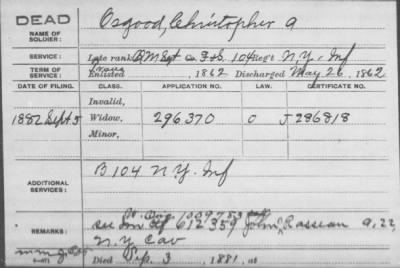 DEAD
NAME OF SOLDIER:
Osgood, Christopher A
SERVICE:
Late rank Q M Sgt Co. F & S. 104 Regt N.Y. Inf
TERM OF SERVICE:
Enlisted , 1862 Discharged May 26, 1862
DATE OF FILING. CLASS. APPLICATION NO. LAW. CERTIFICATE NO.
Invalid,
1882 Sept 5 Widow, 296370 O J 286818
Minor,
ADDITIONAL SERVICES:
B 104 N.Y. Inf
1009783
REMARKS:
see 612359 John Rasseau 9, 22,
N.Y Cav
Died Sep. 3, 1881, at